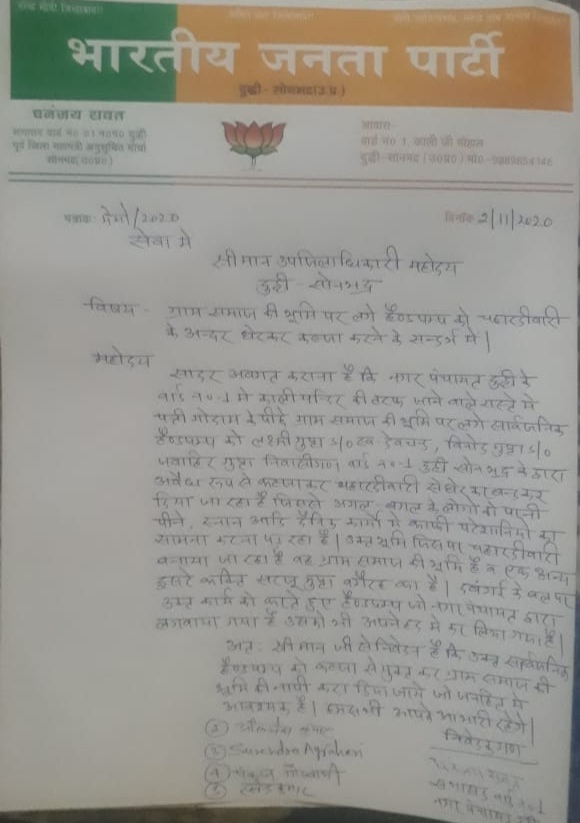 भारतीय जनता पार्टी
दुद्धी- सोनभद्र(उ.प्र.)
धनंजय रावत
सभासद वार्ड नं० 01 न०पं० दुद्धी
पूर्व जिला महामंत्री अनुसूचित मोर्चा
सोनभद्र(उ०प्र०)
आवास-
वार्ड नं० 1, काली जी मोहाल
दुद्धी-सोनभद्र (उ०प्र०) मो०-
पत्रांक: मेमो/2020
दिनांक 2/11/2020
सेवा मे
श्रीमान उपजिलाधिकारी महोदय
दुद्धी - सोनभद्र
विषय - ग्राम समाज की भूमि पर लगे हैण्डपम्प को चहारदीवारी
के अन्दर घेरकर कब्जा करने के सन्दर्भ मे |
महोदय
सादर अवगत कराना है कि नगर पंचायत दुद्धी के
वार्ड न०-1 मे काली मन्दिर की तरफ जाने वाले रास्ते मे
गोदाम के पीछे ग्राम समाज की भूमि पर लगे सार्वजनिक
हैण्डपम्प को लक्ष्मी गुप्ता S/o स्व. विनोद गुप्ता S/o
जवाहिर गुप्ता निवासीगण वार्ड न०-1 दुद्धी सोनभद्र के द्वारा
अवैध रूप से कब्जा कर चहारदीवारी से घेर कर बन्द कर
दिया जा रहा है जिससे अगल-बगल के लोगों को पानी
पीने, स्नान आदि दैनिक कार्यो मे काफी परेशानियो का
सामना करना पड़ रहा है | उक्त भूमि जिस पर चहारदीवारी
बनाया जा रहा है वह ग्राम समाज की भूमि है व एक अन्य
दूसरे व्यक्ति सरजू गुप्ता वगैरह का है | दबंगई के बल पर
उक्त कार्य को करते हुए हैण्डपम्प जो नगर पंचायत द्वारा
लगवाया गया है उसको भी अपने हद मे कर लिया गया है |
अतः श्रीमान जी से निवेदन है कि उक्त सार्वजनिक
हैण्डपम्प को कब्जा से मुक्त कर ग्राम समाज की
भूमि की नापी करा दिया जाये जो जनहित मे
आवश्यक है | हम सभी आपके आभारी रहेंगे |
निवेदकगण
②
③ Surendra Agrahari
④
⑤
सभासद वार्ड न०-1
नगर पंचायत दुद्धी